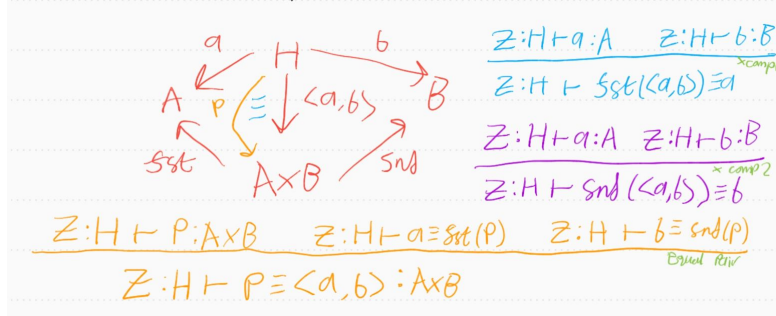 a
b
H
A
P
≡
<a,b>
B
fst
A×B
snd
Z:H⊢a:A Z:H⊢b:B
×comp
Z:H ⊢ fst(<a,b>)≡a
Z:H⊢a:A Z:H⊢b:B
× comp 2
Z:H ⊢ snd(<a,b>)≡b
Z:H ⊢ P:A×B Z:H⊢a≡fst(P) Z:H ⊢b≡snd(P)
Equal Pair
Z:H⊢ P≡<a,b>:A×B